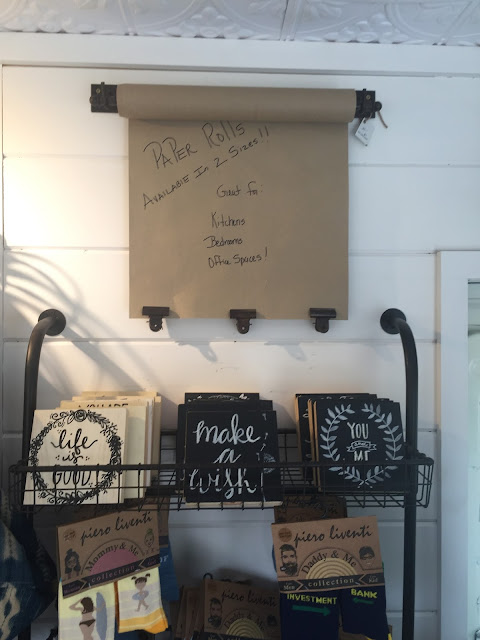 PAPER ROLLS
AVAILABLE IN 2 SIZES!!
Great for:
Kitchens
Bedrooms
Office Spaces!
life
is
GOOD
make
a
wish
YOU
AND
ME
piero liventi
Mommy & Me
collection
piero liventi
Daddy & Me
collection
INVESTMENT
BANK
piero liventi